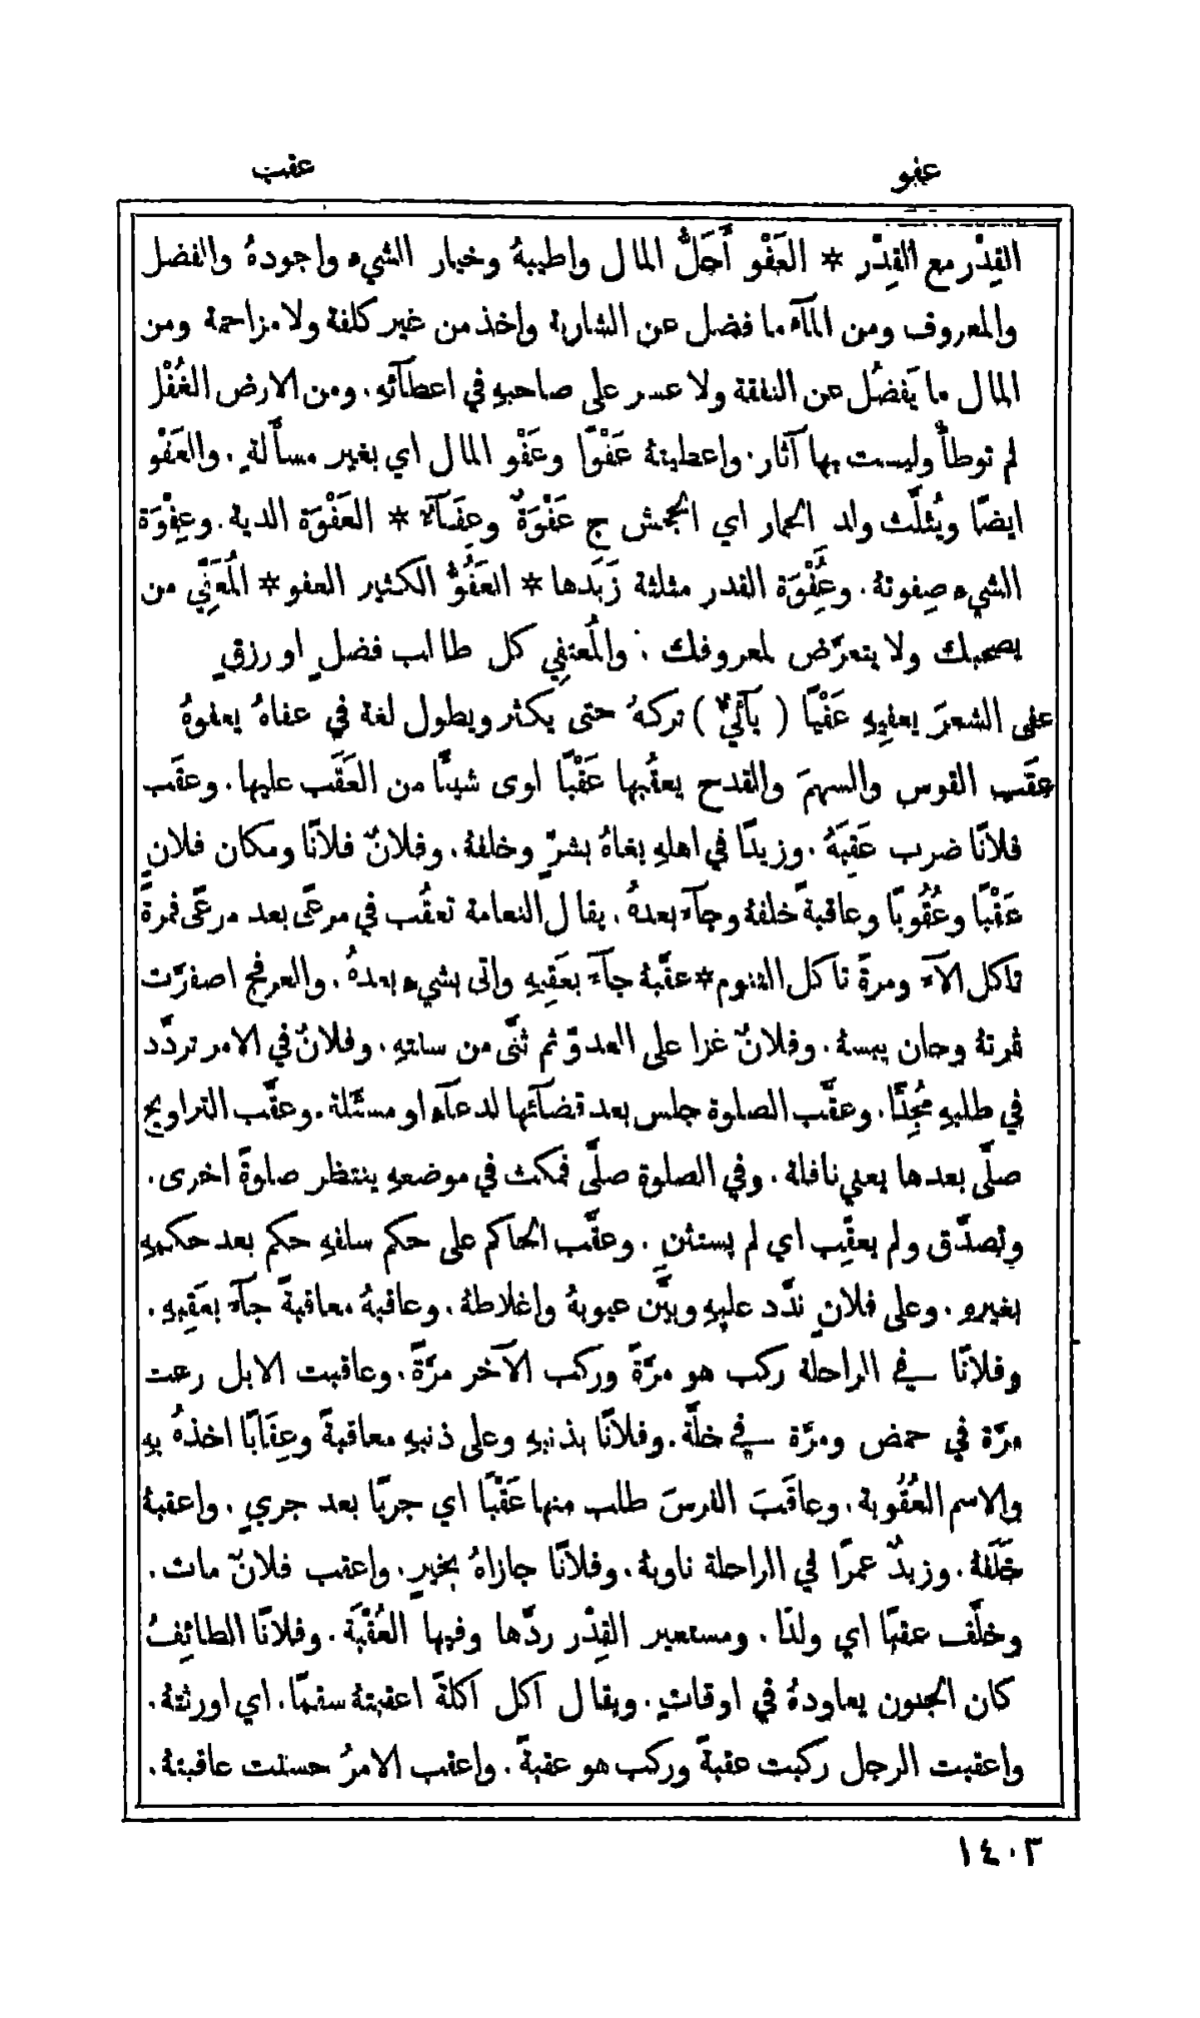 عفو
عقب
القِدْر مع القِدْر * العَفْو أَحَلُّ المال واطيبهُ وخيار الشيء واجودهُ والفضل
والمعروف ومن المآء ما فضل عن الشاربة وأخذ من غير كلفة ولا مزاحمة ومن
المال ما يَفضُل عن النفقة ولا عسر على صاحبهِ في اعطآئهِ. ومن الارض الغُفْل
لم توطأْ وليست بها آثار. واعطيتهُ عَفْوًا وعَفْو المال اي بغير مسأَلةٍ. والعَفْو
ايضًا ويُثلَّث ولد الحمار اي الجحش ج عَفْوَةٌ وعِفَآءٌ * العَفْوَة الدية. وعِفْوَة
الشيء صِفوتهُ. وعُِفْوَة القدر مثلثة زَبَدها * العَفُوُّ الكثير العفو * المُعَفِّي من
يصحبك ولا يتعرَّض لمعروفك. والمُعتفِي كل طالب فضلٍ او رزقٍ
عفى الشعرَ يعفِيهِ عَفْيًا ( يآئيٌّ ) تركهُ حتى يكثر ويطول لغة في عفاهُ يعفوهُ
عقَب القوس والسهمَ والقدح يعقُبها عَقْبًا لوى شيئًا من العَقَب عليها. وعقَب
فلانًا ضرب عَقِبَهُ. وزيدًا في اهلهِ بغاهُ بشرٍّ وخلفهُ. وفلانٌ فلانًا ومكان فلانٍ
عَقْبًا وعُقُوبًا وعاقبةً خلفهُ وجآء بعدهُ. يقال النعامة تعقُب في مرعًى بعد مرعًى فمرةً
تاكل الآء ومرةً تاكل التنوم * عقَّبهُ جآء بعَقِبهِ واتى بشيء بعدهُ. والعرفج اصفرَّت
ثمرتهُ وحان يبسهُ. وفلانٌ غزا على العدوّ ثم ثنَّى من سنتهِ. وفلانٌ في الامر تردَّد
في طلبهِ مُجِدًّا. وعقَّب الصلوة جلس بعد قضآئها لدعآء او مسئلة. وعقَّب التراويح
صلَّى بعدها يعني نافلة. وفي الصلوة صلَّى فمكث في موضعهِ ينتظر صلوةً اخرى.
وتصدَّق ولم يعقِّب اي لم يستثنِ. وعقَّب الحاكم على حكم سلفهِ حكم بعد حكمهِ
بغيرهِ. وعلى فلانٍ ندَّد عليهِ وبيَّن عيوبهُ واغلاطهُ. وعاقبهُ معاقبةً جآء بعَقِبهِ.
وفلانًا في الراحلة ركب هو مرَّةً وركب الآخر مرَّةً. وعاقبت الابل رعت
مرَّة في حمض ومرَّة في خلَّة. وفلانًا بذنبهِ وعلى ذنبهِ معاقبةً وعِقَابًا اخذهُ بهِ
والاسم العُقُوبة. وعاقَبَ الفرسَ طلب منها عَقْبًا اي جريًا بعد جريٍ. واعقبهُ
خَلَفهُ. وزيدٌ عمرًا في الراحلة ناوبهُ. وفلانًا جازاهُ بخيرٍ. واعقب فلانٌ مات.
وخلَّف عقبًا اي ولدًا. ومستعير القِدْر ردَّها وفيها العُقْبَة. وفلانًا الطائِفُ
كان الجنون يعاودهُ في اوقاتٍ. ويقال اكل اكلةً اعقبتهُ سقمًا. اي اورثتهُ.
واعقبت الرجل ركبت عقبةً وركب هو عقبةً. واعقب الامرُ حسنت عاقبتهُ.
١٤٠٣